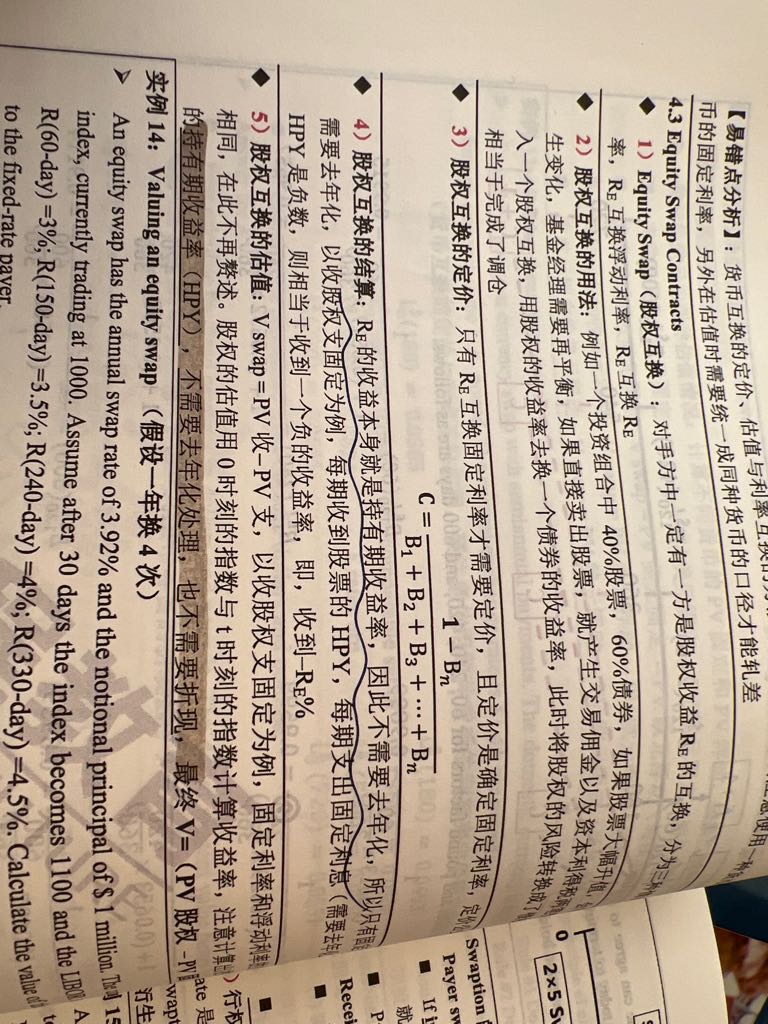 【易错点分析】：货币互换的定价、估值与利率互换的
币的固定利率，另外在估值时需要统一成同种货币的口径才能轧差
4.3 Equity Swap Contracts
◆ 1）Equity Swap（股权互换）：对手方中一定有一方是股权收益 RE 的互换，分为三种
率，RE 互换浮动利率，RE 互换 RE
◆ 2）股权互换的用法：例如一个投资组合中 40%股票，60%债券，如果股票大幅升值
生变化，基金经理需要再平衡，如果直接卖出股票，就产生交易佣金以及资本利得税
入一个股权互换，用股权的收益率去换一个债券的收益率，此时将股权的风险转换成
相当于完成了调仓
◆ 3）股权互换的定价：只有 RE 互换固定利率才需要定价，且定价是确定固定利率，定价
C = (1 − Bn) / (B1 + B2 + B3 + ... + Bn)
◆ 4）股权互换的结算：RE 的收益本身就是持有期收益率，因此不需要去年化，所以只有固
需要去年化，以收股权支固定为例，每期收到股票的 HPY，每期支出固定利息（需要去年
HPY 是负数，则相当于收到一个负的收益率，即，收到−RE%
◆ 5）股权互换的估值：V swap = PV 收−PV 支，以收股权支固定为例，固定利率和浮动利率
相同，在此不再赘述。股权的估值用 0 时刻的指数与 t 时刻的指数计算收益率，注意计算
的持有期收益率（HPY），不需要去年化处理，也不需要折现，最终 V=（PV 股权 −PV
实例 14：Valuing an equity swap （假设一年换 4 次）
➢ An equity swap has the annual swap rate of 3.92% and the notional principal of $ 1 million. The
index, currently trading at 1000. Assume after 30 days the index becomes 1100 and the LIBO
R(60-day) =3%; R(150-day) =3.5%; R(240-day) =4%; R(330-day) =4.5%. Calculate the value of
to the fixed-rate payer.
0
2×5 Sw
Swaption
Payer sw
■ If i
就
■ P
Recei
■
ate 是
行权
■
15
衍生
wapt